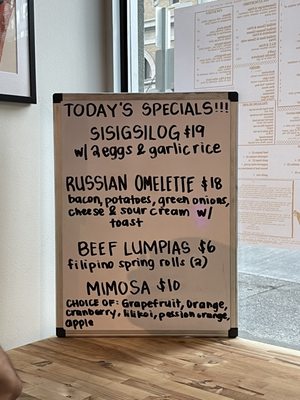 TODAY'S SPECIALS!!!
SISIGSILOG $19
w/ 2 eggs & garlic rice
RUSSIAN OMELETTE $18
bacon, potatoes, green onions,
cheese & sour cream w/
toast
BEEF LUMPIAS $6
filipino spring rolls (2)
MIMOSA $10
CHOICE OF: Grapefruit, Orange,
cranberry, lilikoi, passion orange,
apple